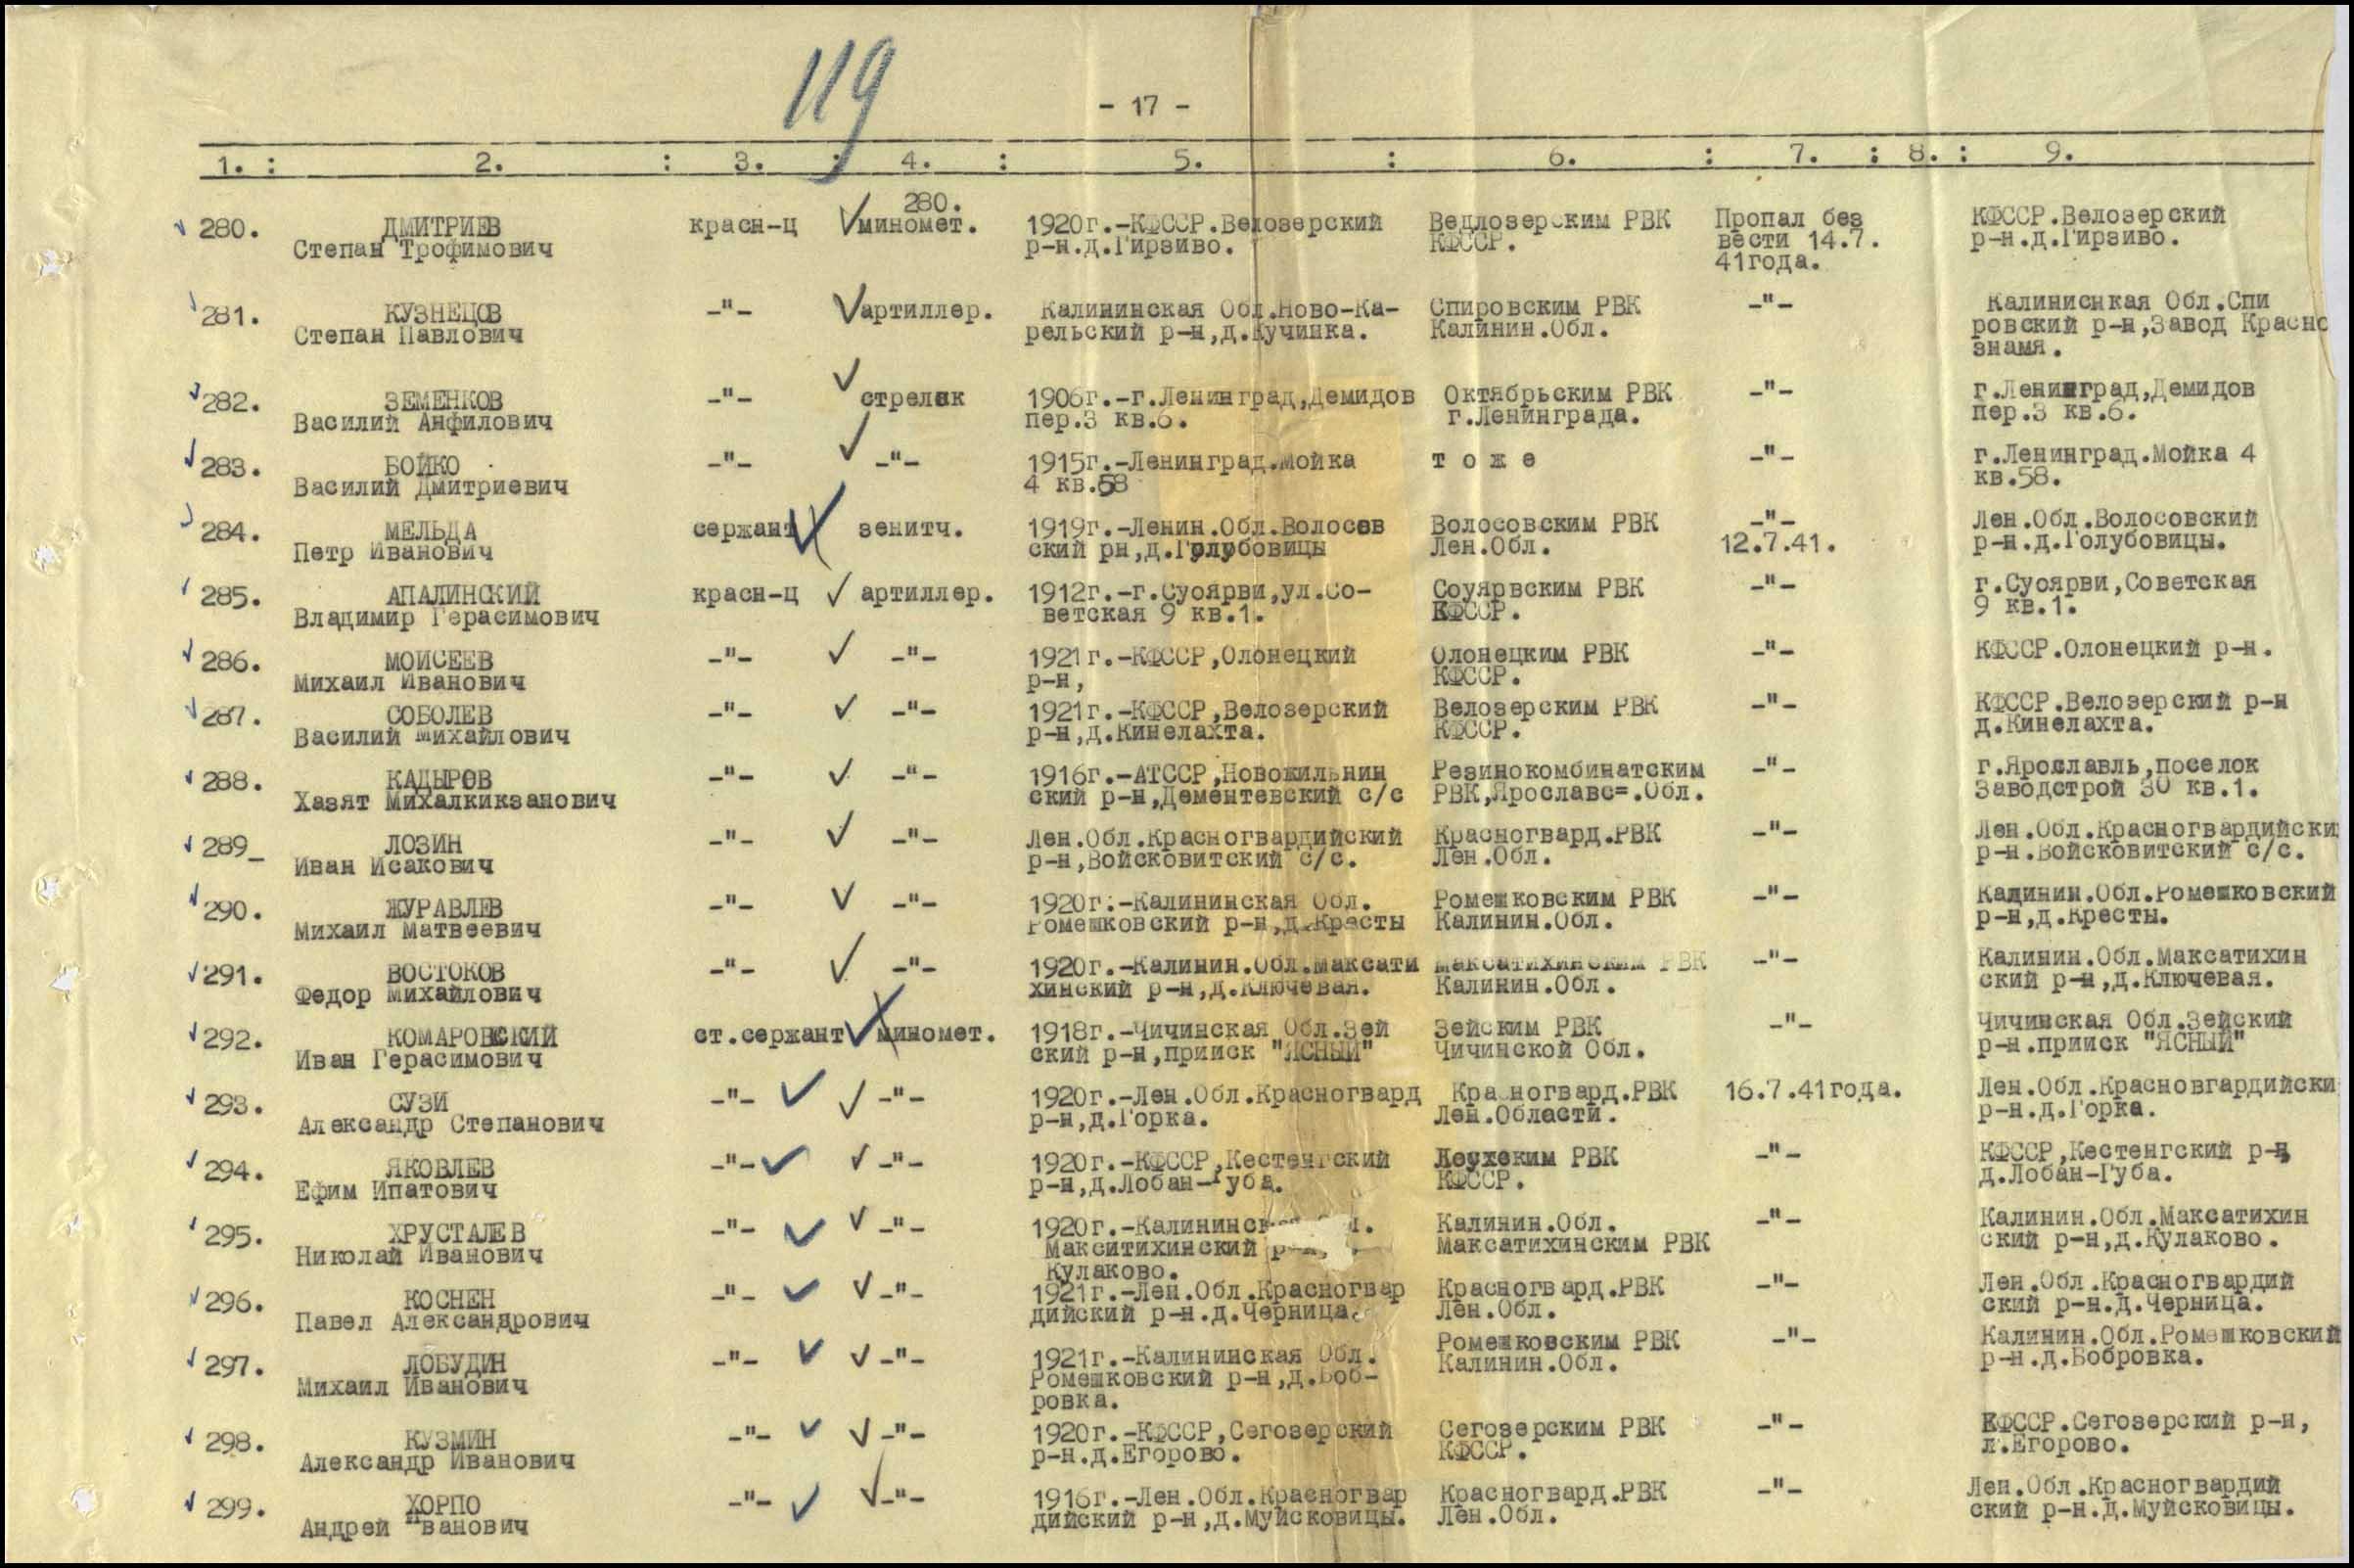 119
- 17 -
1. : 2. : 3. : 4. : 5. : 6. : 7. : 8. : 9.
280.
280. ДМИТРИЕВ красн-ц миномет. 1920г.-КФССР.Велозерский Ведлозерским РВК Пропал без КФССР.Велозерский
Степан Трофимович р-н.д.Гирзиво. КФССР. вести 14.7. р-н.д.Гирзиво.
41года.
281. КУЗНЕЦОВ -"- артиллер. Калининская Обл.Ново-Ка- Спировским РВК -"- Калинисккая Обл.Спи
Степан Павлович рельский р-н,д.Кучинка. Калинин.Обл. ровский р-н,Завод Красно
знамя.
282. ЗЕМЕНКОВ -"- стрелок 1906г.-г.Ленинград,Демидов Октябрьским РВК -"- г.Ленинград,Демидов
Василий Анфилович пер.3 кв.6. г.Ленинграда. пер.3 кв.6.
283. БОЙКО -"- -"- 1915г.-Ленинград.Мойка т о ж е -"- г.Ленинград.Мойка 4
Василий Дмитриевич 4 кв.58 кв.58.
284. МЕЛЬДА сержант зенитч. 1919г.-Ленин.Обл.Волосов Волосовским РВК -"- Лен.Обл.Волосовский
Петр Иванович ский рн,д.Голубовицы Лен.Обл. 12.7.41. р-н.д.Голубовицы.
285. АПАЛИНСКИЙ красн-ц артиллер. 1912г.-г.Суоярви,ул.Со- Соуярвским РВК -"- г.Суоярви,Советская
Владимир Герасимович ветская 9 кв.1. КФССР. 9 кв.1.
286. МОИСЕЕВ -"- -"- 1921г.-КФССР,Олонецкий Олонецким РВК -"- КФССР.Олонецкий р-н.
Михаил Иванович р-н, КФССР.
287. СОБОЛЕВ -"- -"- 1921г.-КФССР,Велозерский Велозерским РВК -"- КФССР.Велозерский р-н
Василий Михайлович р-н,д.Кинелахта. КФССР. д.Кинелахта.
288. КАДЫРОВ -"- -"- 1916г.-АТССР,Новожильнин Резинокомбинатским -"- г.Ярославль,поселок
Хазят Михалкикзанович ский р-н,Дементевский с/с РВК,Ярославс=.Обл. Заводстрой 30 кв.1.
289_ ЛОЗИН -"- -"- Лен.Обл.Красногвардийский Красногвард.РВК -"- Лен.Обл.Красногвардийски
Иван Исакович р-н,Войсковитский с/с. Лен.Обл. р-н.Войсковитский с/с.
290. ЖУРАВЛЕВ -"- -"- 1920г.-Калининская Обл. Ромешковским РВК -"- Калинин.Обл.Ромешковский
Михаил Матвеевич Ромешковский р-н,д.Кресты Калинин.Обл. р-н,д.Кресты.
291. ВОСТОКОВ -"- -"- 1920г.-Калинин.Обл.Максати Максатихинским РВК -"- Калинин.Обл.Максатихин
Федор Михайлович хинский р-н,д.Ключевая. Калинин.Обл. ский р-н,д.Ключевая.
292. КОМАРОВСКИЙ ст.сержант миномет. 1918г.-Чичинская Обл.Зей Зейским РВК -"- Чичинская Обл.Зейский
Иван Герасимович ский р-н,прииск "ЯСНЫЙ" Чичинской Обл. р-н.прииск "ЯСНЫЙ"
293. СУЗИ -"- -"- 1920г.-Лен.Обл.Красногвард Красногвард.РВК 16.7.41года. Лен.Обл.Красновгардийски
Александр Степанович р-н,д.Горка. Лен.Области. р-н.д.Горка.
294. ЯКОВЛЕВ -"- -"- 1920г.-КФССР,Кестенгский Лоухским РВК -"- КФССР,Кестенгский р-н,
Ефим Ипатович р-н,д.Лобан-Губа. КФССР. д.Лобан-Губа.
295. ХРУСТАЛЕВ -"- -"- 1920г.-Калининск Калинин.Обл. -"- Калинин.Обл.Максатихин
Николай Иванович Макситихинский р-н, Максатихинским РВК ский р-н,д.Кулаково.
Кулаково.
296. КОСНЕН -"- -"- 1921г.-Лен.Обл.Красногвар Красногвард.РВК -"- Лен.Обл.Красногвардий
Павел Александрович дийский р-н.д.Черница. Лен.Обл. ский р-н.д.Черница.
297. ЛОБУДИН -"- -"- 1921г.-Калининская Обл. Ромешковским РВК -"- Калинин.Обл.Ромешковский
Михаил Иванович Ромешковский р-н,д.Боб- Калинин.Обл. р-н.д.Бобровка.
ровка.
298. КУЗМИН -"- -"- 1920г.-КФССР,Сегозерский Сегозерским РВК -"- КФССР.Сегозерский р-н,
Александр Иванович р-н.д.Егорово. КФССР. л.Егорово.
299. ХОРПО -"- -"- 1916г.-Лен.Обл.Красногвар Красногвард.РВК -"- Лен.Обл.Красногвардий
Андрей Иванович дийский р-н,д.Муйсковицы. Лен.Обл. ский р-н.д.Муйсковицы.